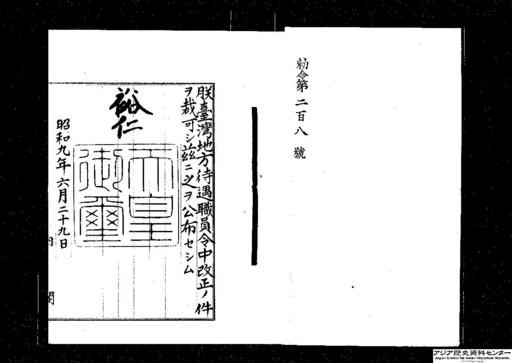 勅令第二百八號
朕臺灣地方待遇職員令中改正ノ件
ヲ裁可シ茲ニ之ヲ公布セシム
裕仁
天皇
御璽
昭和九年六月二十九日
内閣
アジア歴史資料センター
Japan Center for Asian Historical Records